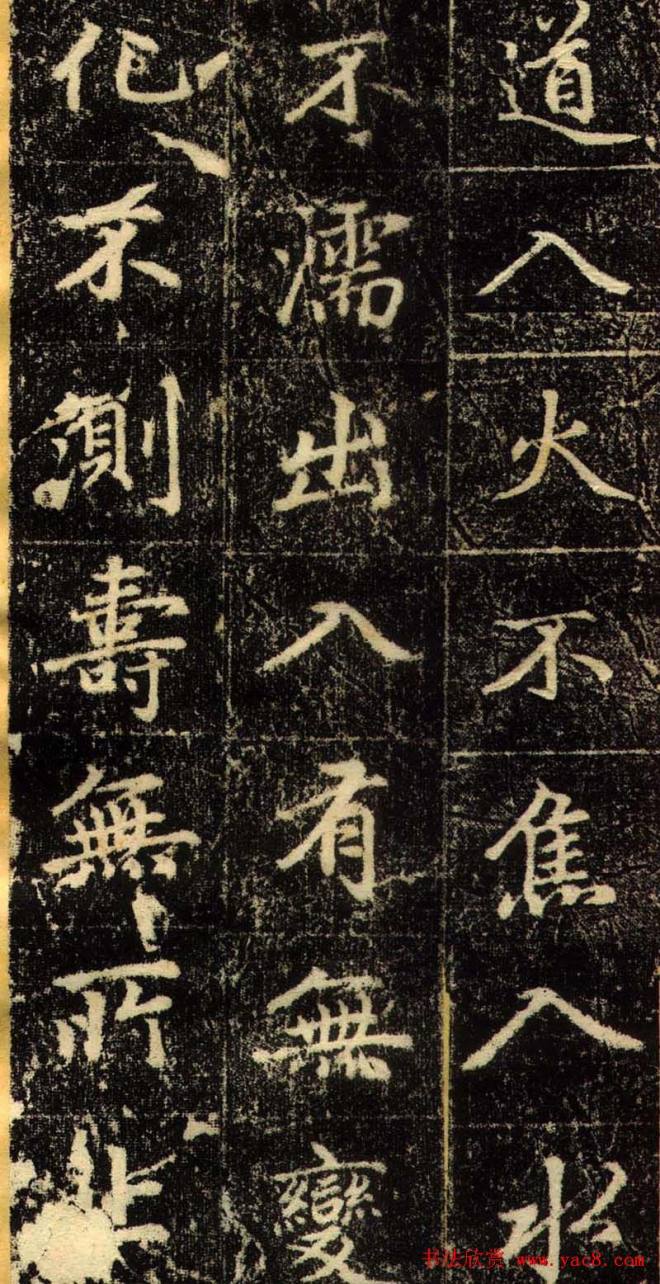 道入火不焦入水
不濡出入有無變
化不測壽無所
书法欣赏 www.yac8.com